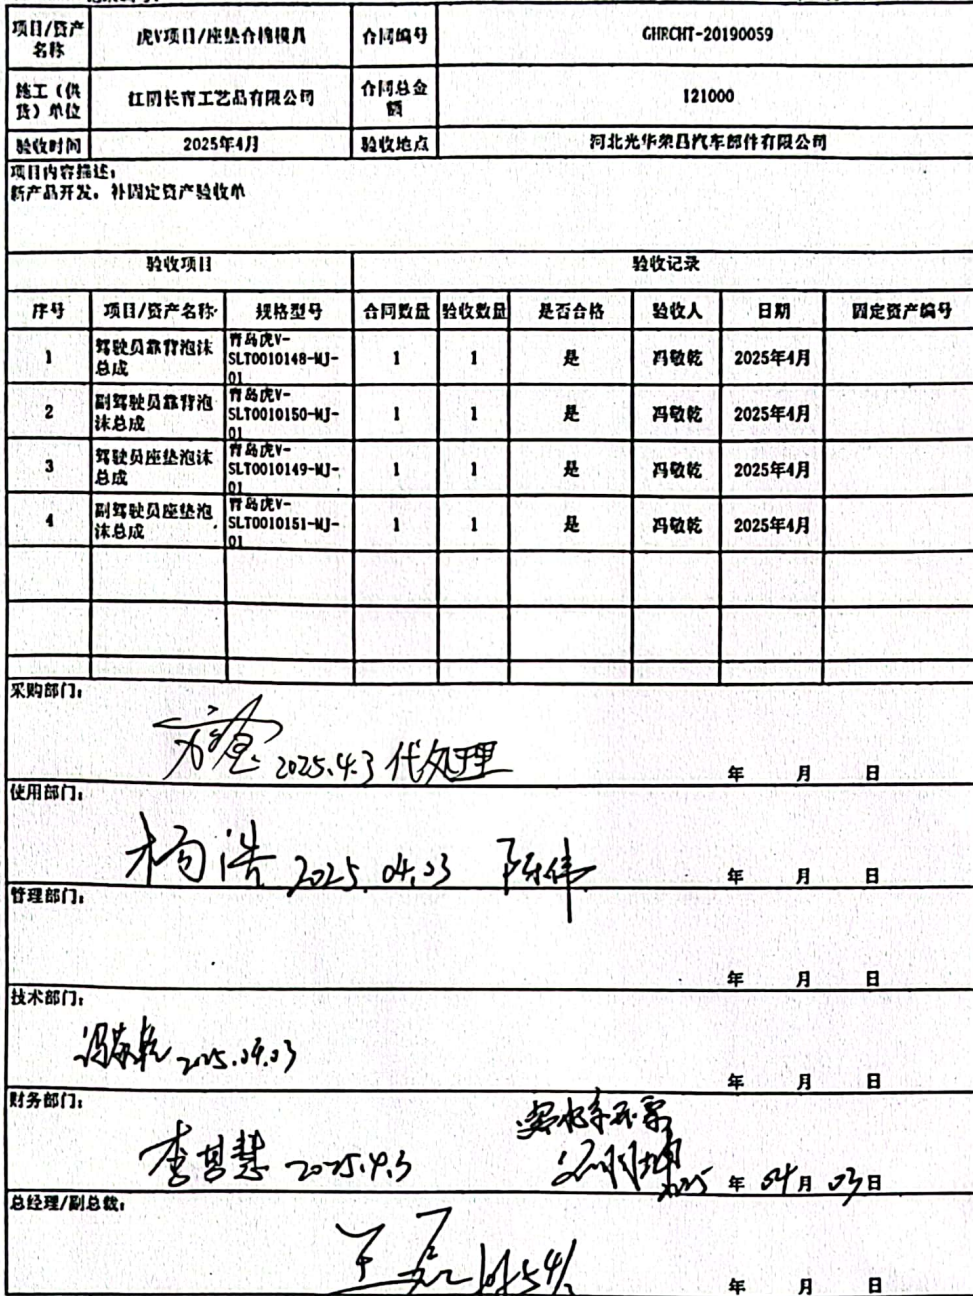 项目/资产名称 虎V项目/座垫合棉模具 合同编号 GHRCHT-20190059
施工（供货）单位 江阴长青工艺品有限公司 合同总金额 121000
验收时间 2025年4月 验收地点 河北光华荣昌汽车部件有限公司
项目内容描述：
新产品开发，补固定资产验收单
验收项目 验收记录
序号 项目/资产名称 规格型号 合同数量 验收数量 是否合格 验收人 日期 固定资产编号
1 驾驶员靠背泡沫总成 青岛虎V-SLT0010148-MJ-01 1 1 是 冯敬乾 2025年4月
2 副驾驶员靠背泡沫总成 青岛虎V-SLT0010150-MJ-01 1 1 是 冯敬乾 2025年4月
3 驾驶员座垫泡沫总成 青岛虎V-SLT0010149-MJ-01 1 1 是 冯敬乾 2025年4月
4 副驾驶员座垫泡沫总成 青岛虎V-SLT0010151-MJ-01 1 1 是 冯敬乾 2025年4月
采购部门：
2025.4.3 代处理
年 月 日
使用部门：
杨浩 2025.04.03 陈伟
年 月 日
管理部门：
年 月 日
技术部门：
冯敬乾 2025.04.03
年 月 日
财务部门：
李其慧 2025.4.3
2025 年 04 月 03 日
总经理/副总裁：
王磊
年 月 日